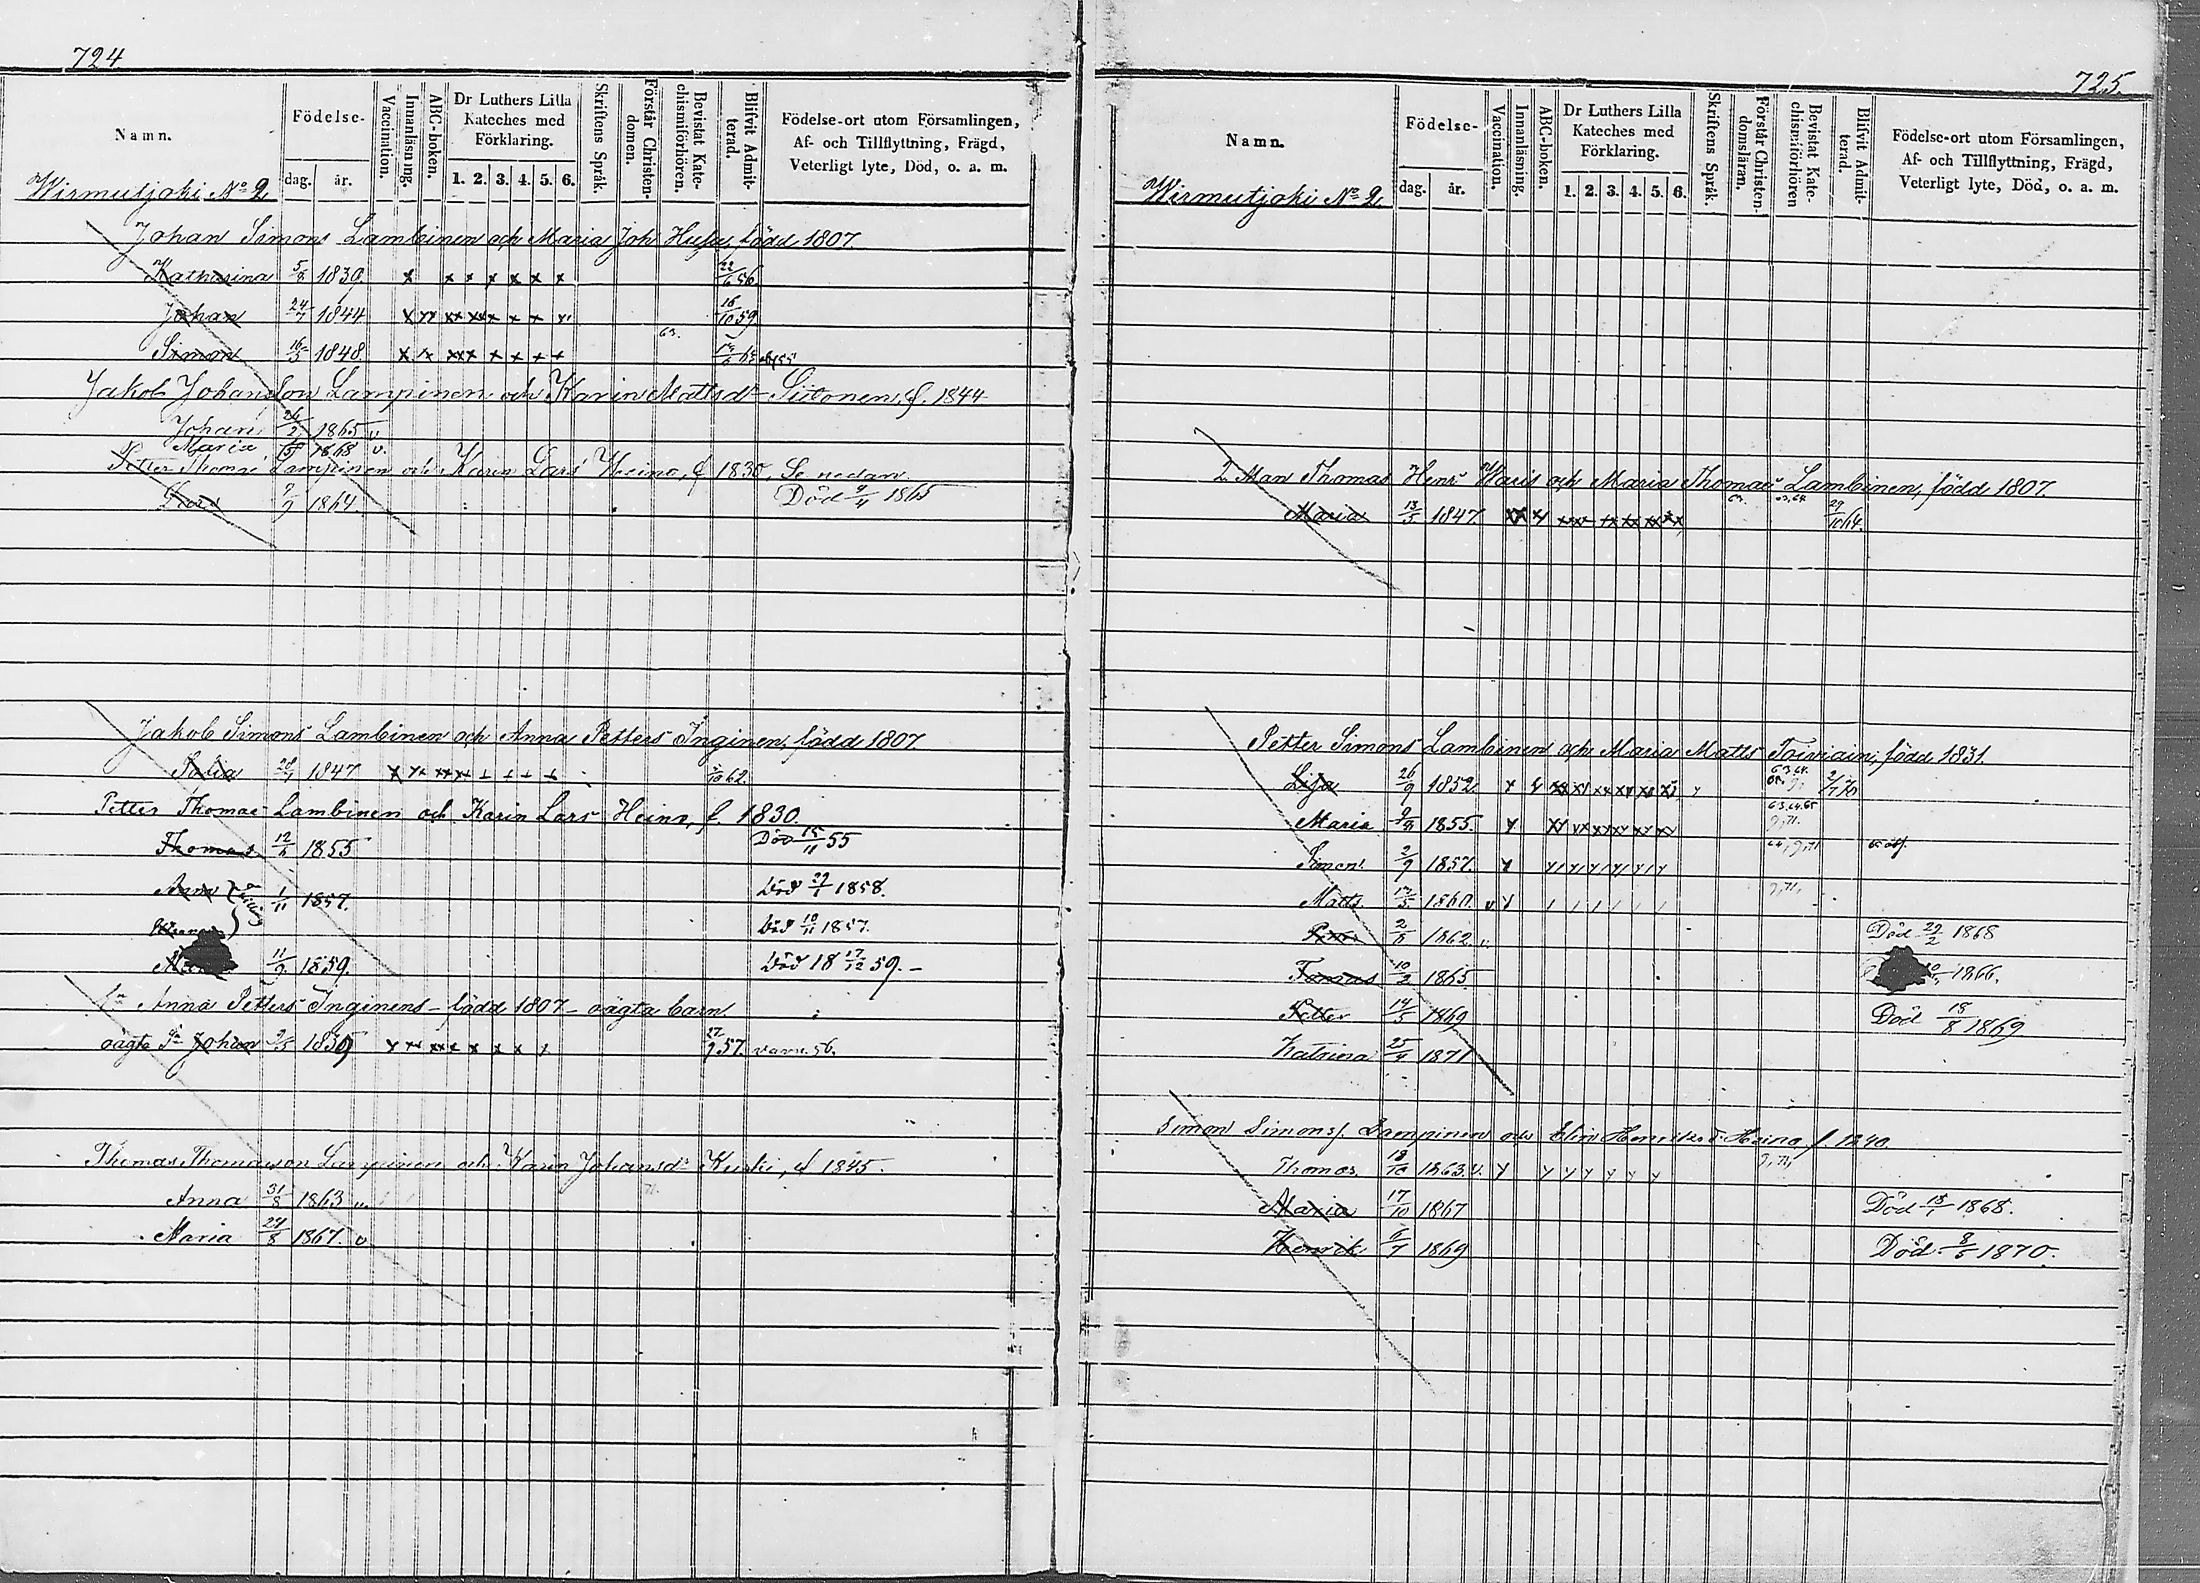 724.
Namn.
Födelse-
dag. år.
Vaccination.
Innanläsning.
ABC-boken.
Dr Luthers Lilla Kateches med Förklaring.
1. 2. 3. 4. 5. 6.
Skriftens Språk.
Förstår Christen-domen.
Bevistat Kate-chismiförhören.
Blifvit Admit-terad.
Födelse-ort utom Församlingen,
Af- och Tillflyttning, Frägd,
Veterligt lyte, Död, o. a. m.
Wirmutjoki No 2
Johan Simons Lambinen och Maria Joh Hufu, född 1807.
Katharina 5/8 1839. 22/6 56.
Johan 24/7 1844 16/10 59
63.
Simon 16/5 1848.
Jakob Johansson Lampinen och Karin Mattsd Siitonen, f. 1844
Johan 26/2 1865 v
Maria 1868 v.
Petter Thomas Lampinen och Karin Lars Heino, f 1830, Se nedan.
1864. Död 9/4 1865
Jakob Simons Lambinen och Anna Petters Inginen, född 1807
28/1 1847 62.
Petter Thomas Lambinen och Karin Lars Heino, f. 1830.
Thomas 12/6 1855 Död 15/11 55
Anna 1/11 1857. Död 29/1 1858.
Död 10/11 1857.
11/9 1859. Död 18 17/12 59.
Anna Petters Inginens - född 1807 - oägta barn.
oägta Johan 9/5 1839 27/9 57.
Thomas Thomasson Lampinen och Karin Johansd Kurki, f 1845.
Anna 31/8 1863 v.
Maria 24/8 1867. v
725.
Namn.
Födelse-
dag. år.
Vaccination.
Innanläsning.
ABC-boken.
Dr Luthers Lilla Kateches med Förklaring.
1. 2. 3. 4. 5. 6.
Skriftens Språk.
Förstår Christen-domsläran.
Bevistat Kate-chismiförhören
Blifvit Admit-terad.
Födelse-ort utom Församlingen,
Af- och Tillflyttning, Frägd,
Veterligt lyte, Död, o. a. m.
Wirmutjoki No 2.
2 Man Thomas Henr Waris och Maria Thomas Lambinen, född 1807.
Maria 13/5 1847. 63. 63,64 29/10 64.
Petter Simons Lambinen och Maria Matts Toiviain, född 1831.
Lisa 26/9 1852 63,64
Maria 1855. 63,64,65
Simon 2/9 1857.
Matts 17/5 1860. v
2/8 1862 v. Död 29/2 1868
Tomas 10/2 1865. 1866.
Petter 14/5 1869 Död 18/8 1869
Katrina 25/4 1871
Simon Simonss. Lampinen och Elin Henriksd Heino f. 1840.
Thomas 18/10 1863. v.
Maria 17/10 1867 Död 18/1 1868.
Henrik 6/7 1869 Död 8/5 1870.